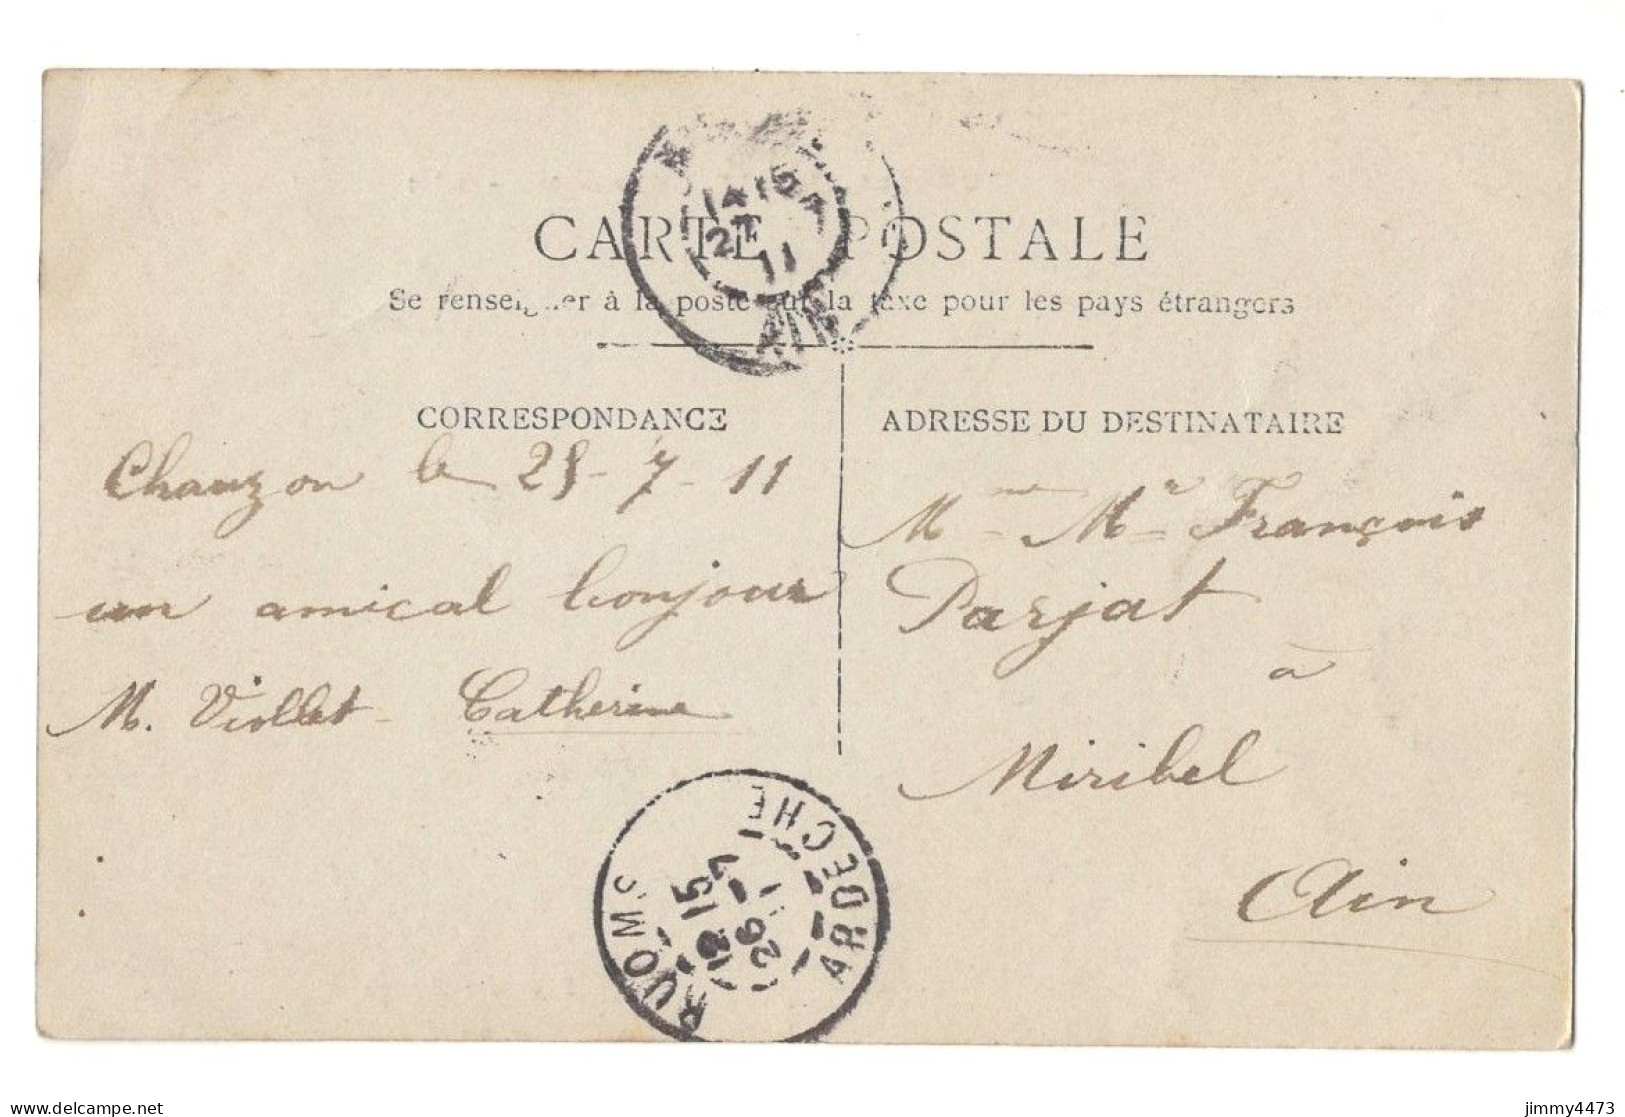 CARTE POSTALE
Se renseigner à la poste sur la taxe pour les pays étrangers
14 15
27
11
AIN
CORRESPONDANCE
Chauzon le 25-7-11
un amical bonjour
M. Viollet Catherine
ADRESSE DU DESTINATAIRE
Mme Mr François
Parjat
à
Miribel
Ain
RUOMS
ARDECHE
12 15
26 - 7
11
delcampe.net
jimmy4473